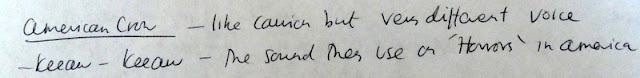 American Crow – like carrion but very different voice
– keeaw – keeaw – the sound they use on 'Horrors' in America